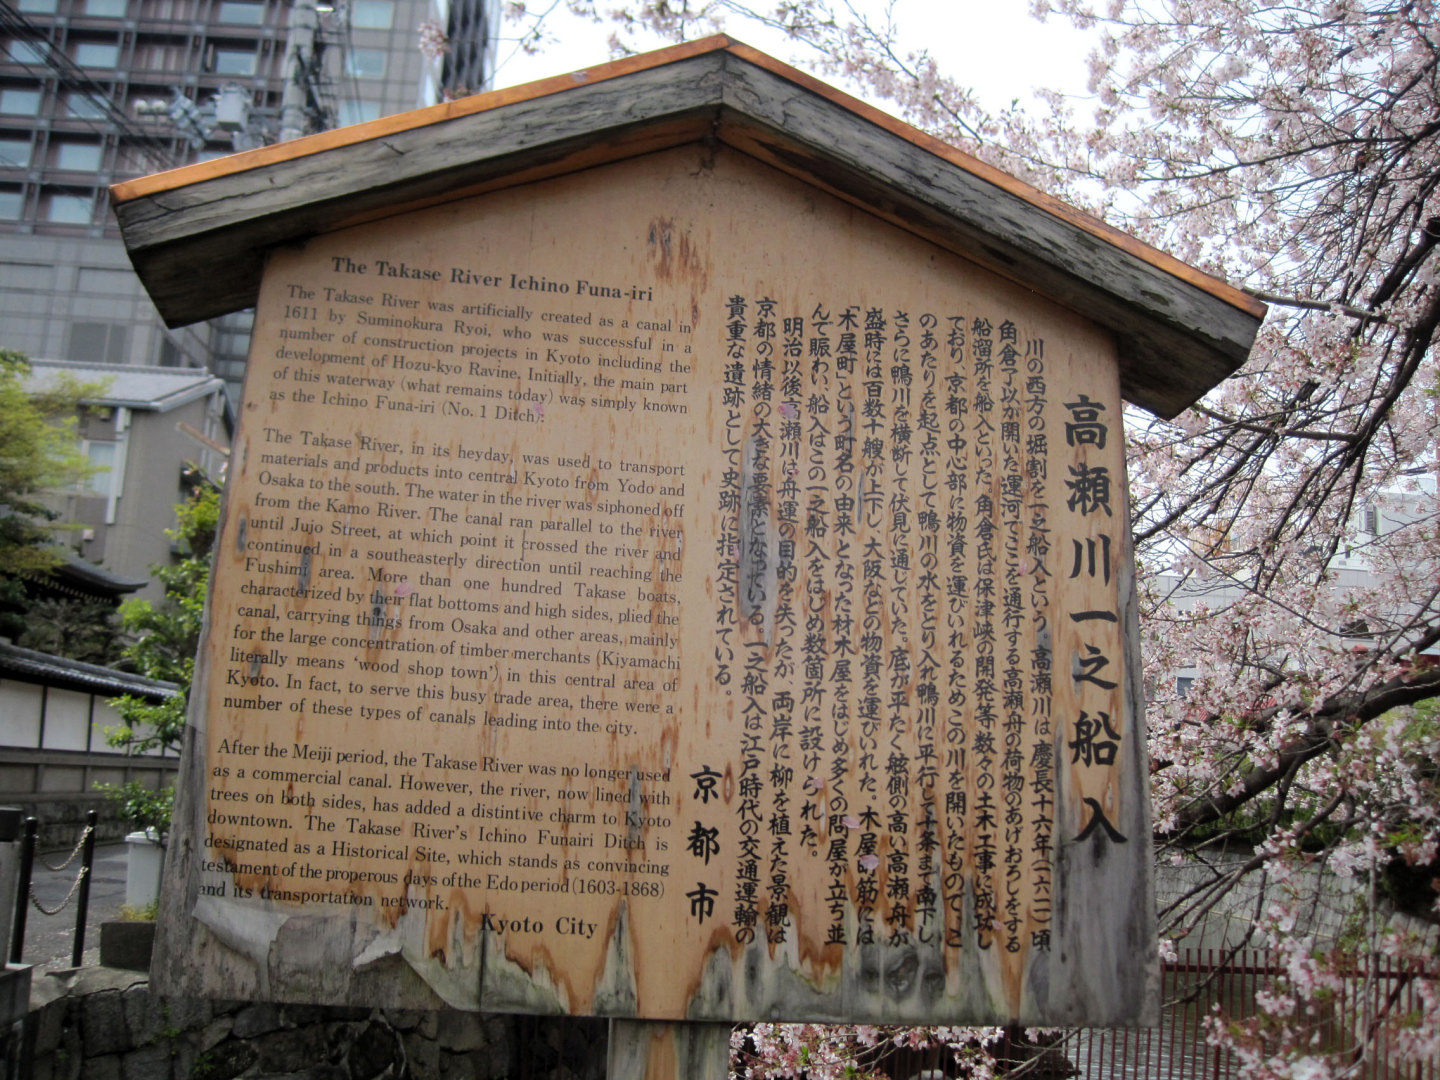 The Takase River Ichino Funa-iri
The Takase River was artificially created as a canal in
1611 by Suminokura Ryoi, who was successful in a
number of construction projects in Kyoto including the
development of Hozu-kyo Ravine. Initially, the main part
of this waterway (what remains today) was simply known
as the Ichino Funa-iri (No. 1 Ditch).
The Takase River, in its heyday, was used to transport
materials and products into central Kyoto from Yodo and
Osaka to the south. The water in the river was siphoned off
from the Kamo River. The canal ran parallel to the river
until Jujo Street, at which point it crossed the river and
continued in a southeasterly direction until reaching the
Fushimi area. More than one hundred Takase boats,
characterized by their flat bottoms and high sides, plied the
canal, carrying things from Osaka and other areas, mainly
for the large concentration of timber merchants (Kiyamachi
literally means ‘wood shop town’) in this central area of
Kyoto. In fact, to serve this busy trade area, there were a
number of these types of canals leading into the city.
After the Meiji period, the Takase River was no longer used
as a commercial canal. However, the river, now lined with
trees on both sides, has added a distintive charm to Kyoto
downtown. The Takase River's Ichino Funairi Ditch is
designated as a Historical Site, which stands as convincing
testament of the properous days of the Edo period (1603-1868)
and its transportation network.
Kyoto City
高瀬川一之船入
川の西方の堀割を一之船入という。高瀬川は慶長十六年(一六一一)頃
角倉了以が開いた運河でここを通行する高瀬舟の荷物のあげおろしをする
船溜所を船入といった。角倉氏は保津峡の開発等数々の土木工事に成功し
ており、京都の中心部に物資を運びいれるためこの川を開いたもので、こ
のあたりを起点として鴨川の水をとり入れ鴨川に平行して十条まで南下し
さらに鴨川を横断して伏見に通じていた。底が平たく舷側の高い高瀬舟が
盛時には百数十艘が上下し、大阪などの物資を運びいれた。木屋町筋には
「木屋町」という町名の由来となった材木屋をはじめ多くの問屋が立ち並
んで賑わい、船入はこの一之船入をはじめ数箇所に設けられた。
明治以後高瀬川は舟運の目的を失ったが、両岸に柳を植えた景観は
京都の情緒の大きな要素となっている。一之船入は江戸時代の交通運輸の
貴重な遺跡として史跡に指定されている。
京都市